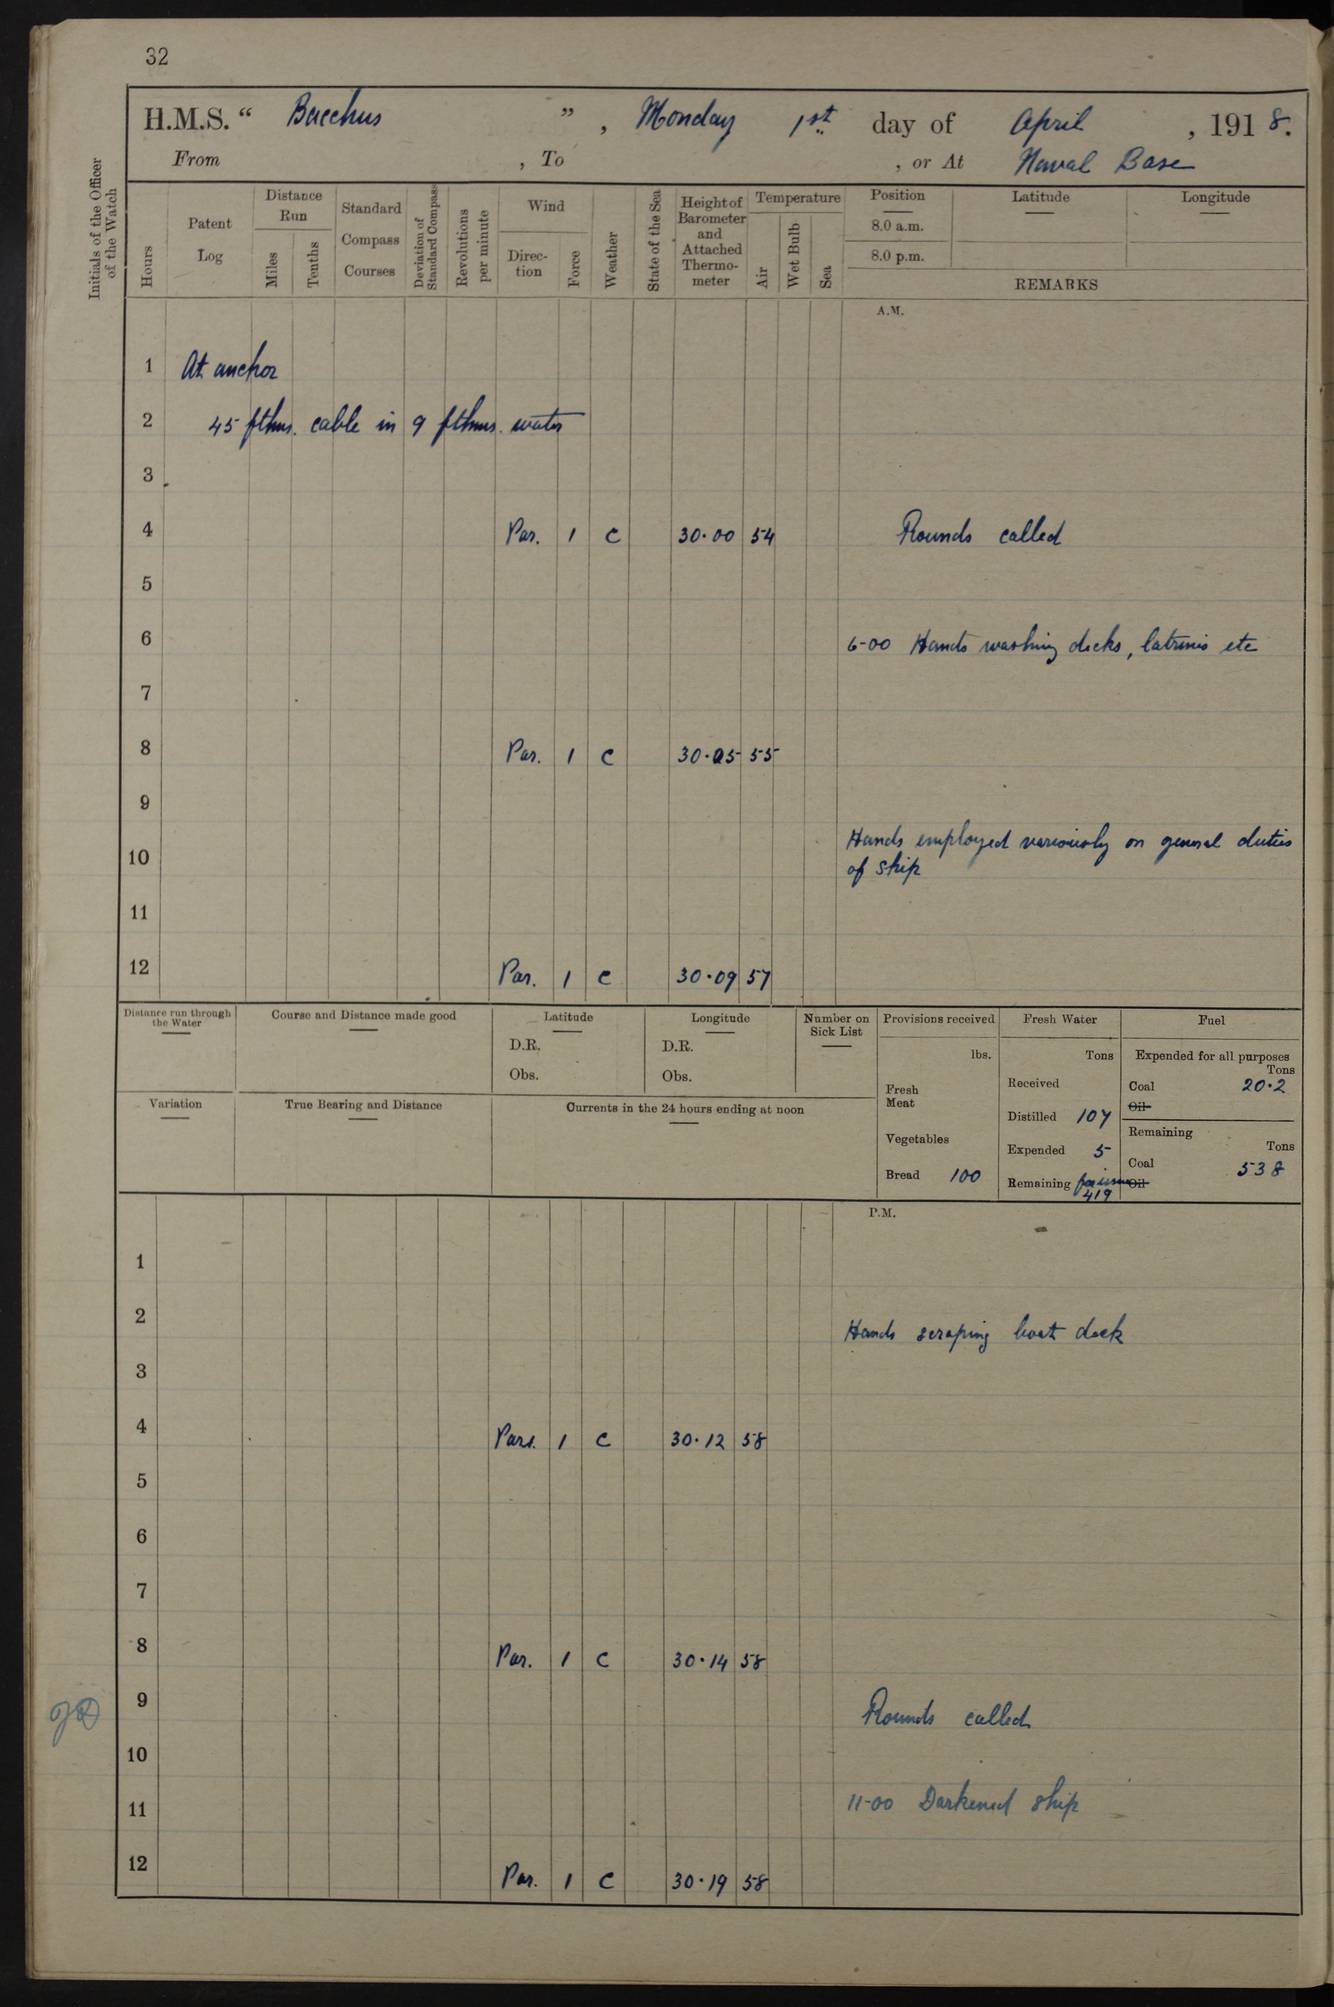 32
H.M.S. “ Bacchus ” , Monday 1st day of April , 1918.
From , To , or At Naval Base
Initials of the Officer of the Watch
Hours
Patent Log
Distance Run
Miles
Tenths
Standard Compass Courses
Deviation of Standard Compass
Revolutions per minute
Wind
Direc-tion
Force
Weather
State of the Sea
Height of Barometer and Attached Thermo-meter
Temperature
Air
Wet Bulb
Sea
Position Latitude Longitude
8.0 a.m.
8.0 p.m.
REMARKS
A.M.
1 At anchor
2 45 fthms. cable in 9 fthms. water
3
4 Par. 1 c 30.00 54 Rounds called
5
6 6-00 Hands washing decks, latrines etc
7
8 Par. 1 c 30.05 55
9
Hands employed variously on general duties
10 of ship
11
12 Par. 1 c 30.09 57
Distance run through the Water
Course and Distance made good
Latitude
D.R.
Obs.
Longitude
D.R.
Obs.
Number on Sick List
Variation
True Bearing and Distance
Currents in the 24 hours ending at noon
Provisions received
lbs.
Fresh Meat
Vegetables
Bread 100
Fresh Water
Tons
Received
Distilled 107
Expended 5
Remaining
419
Fuel
Expended for all purposes
Tons
Coal 20.2
Oil
Remaining
Tons
Coal 538
Oil
P.M.
1
2 Hands scraping boat deck
3
4 Pars. 1 c 30.12 58
5
6
7
8 Par. 1 c 30.14 58
9 Rounds called
10
11 11-00 Darkened ship
12 Par. 1 c 30.19 58